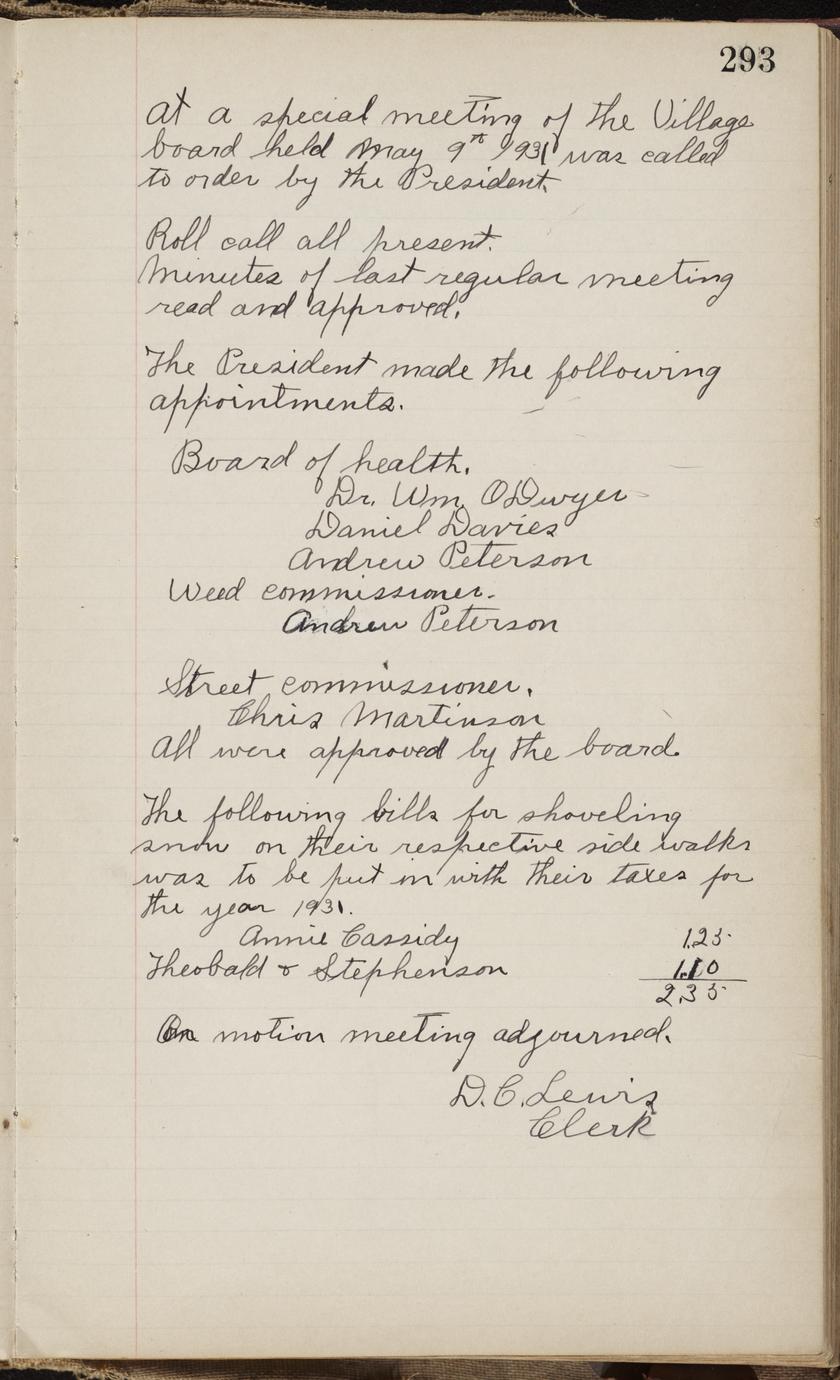 293
at a special meeting of the Village
board held May 9th 1931 was called
to order by the President.
Roll call all present.
Minutes of last regular meeting
read and approved.
The President made the following
appointments.
Board of health.
Dr. Wm. O'Dwyer
Daniel Davies
Andrew Peterson
Weed commissioner.
Andrew Peterson
Street commissioner.
Chris Martinson
All were approved by the board.
The following bills for shoveling
snow on their respective side walks
was to be put in with their taxes for
the year 1931.
Annie Cassidy 1.25
Theobald & Stephenson 1.10
2.35
On motion meeting adjourned.
D. C. Lewis
Clerk